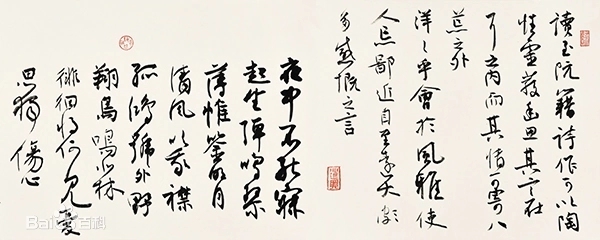 讀至阮籍詩作可以陶
性靈發幽思其言在
耳內而其情寄八
荒之外
洋洋乎會於風雅使
人忘鄙近自至遠大頗
多感慨之言
夜中不能寐
起坐彈鳴琴
薄帷鑒明月
清風吹我襟
孤鴻號外野
翔鳥鳴北林
徘徊將何見憂
思獨傷心
Baidu百科